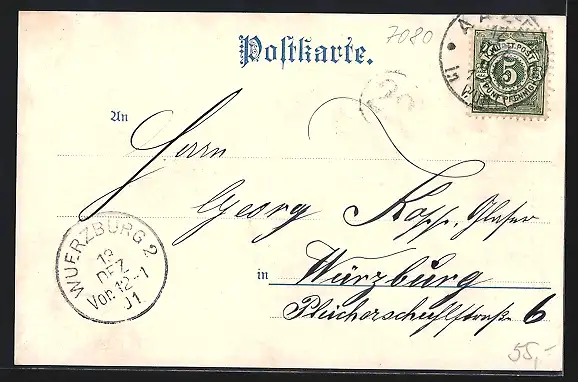 7080
Postkarte.
AALEN
K. WÜRTT. POST
5
FÜNF PFENNIG
An
Herrn
Georg Kopp, Glaser
in Würzburg
Pleicherschulstraße 6
WUERZBURG 2
13
DEZ
Vor. 12-1
01
55,-